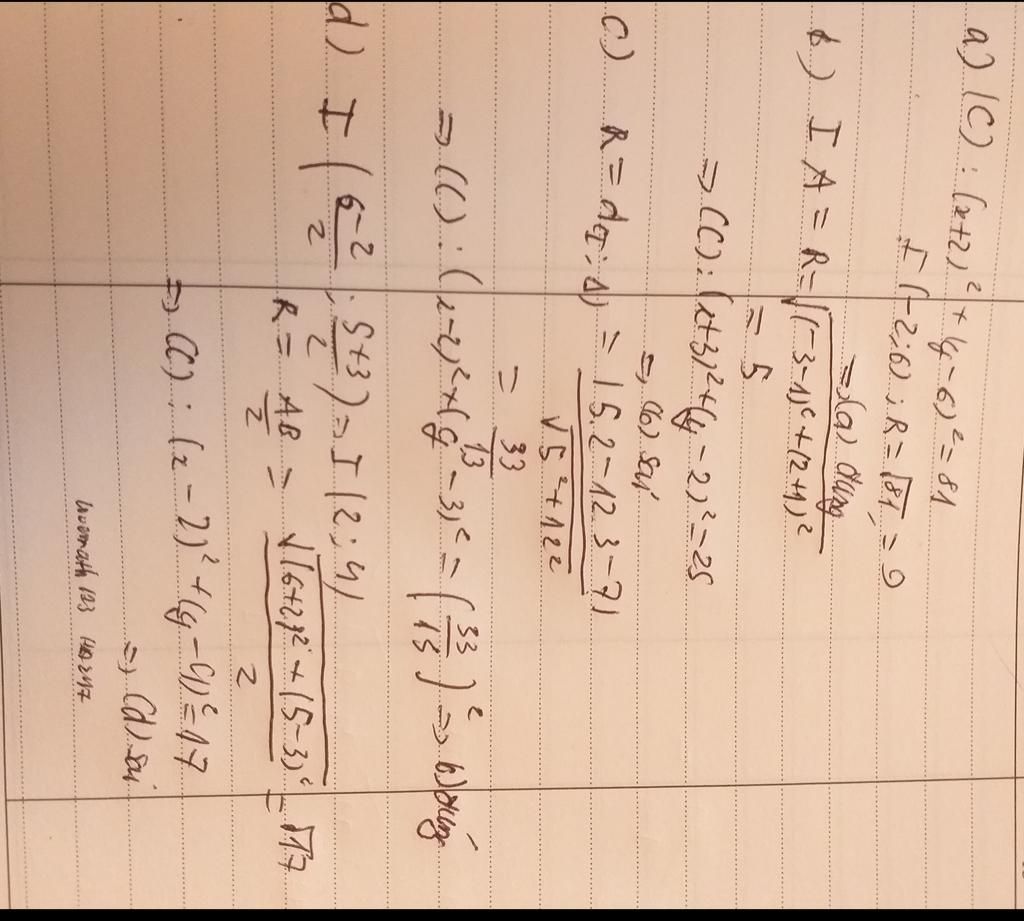 a) (C) : (x+2)² + (y-6)² = 81
I (-2;6) ; R = √81 = 9
=> (a) đúng
b) I A = R = √((-3-1)² + (2+1)²
= 5
=> (C) : (x+3)² + (y-2)² = 25
=> (b) sai
c) R = d(I; Δ) = |5.2-12.3-7| / √5²+12²
= 33/13
=> (C) : (x-2)² + (y-3)² = (33/13)² => b) đúng
d) I (6-2/2 ; 5+3/2) => I (2; 4)
R = AB/2 = √(6+2)² + (5-3)² / 2 = √17
=> (C) : (x-2)² + (y-4)² = 17
=> (d) sai